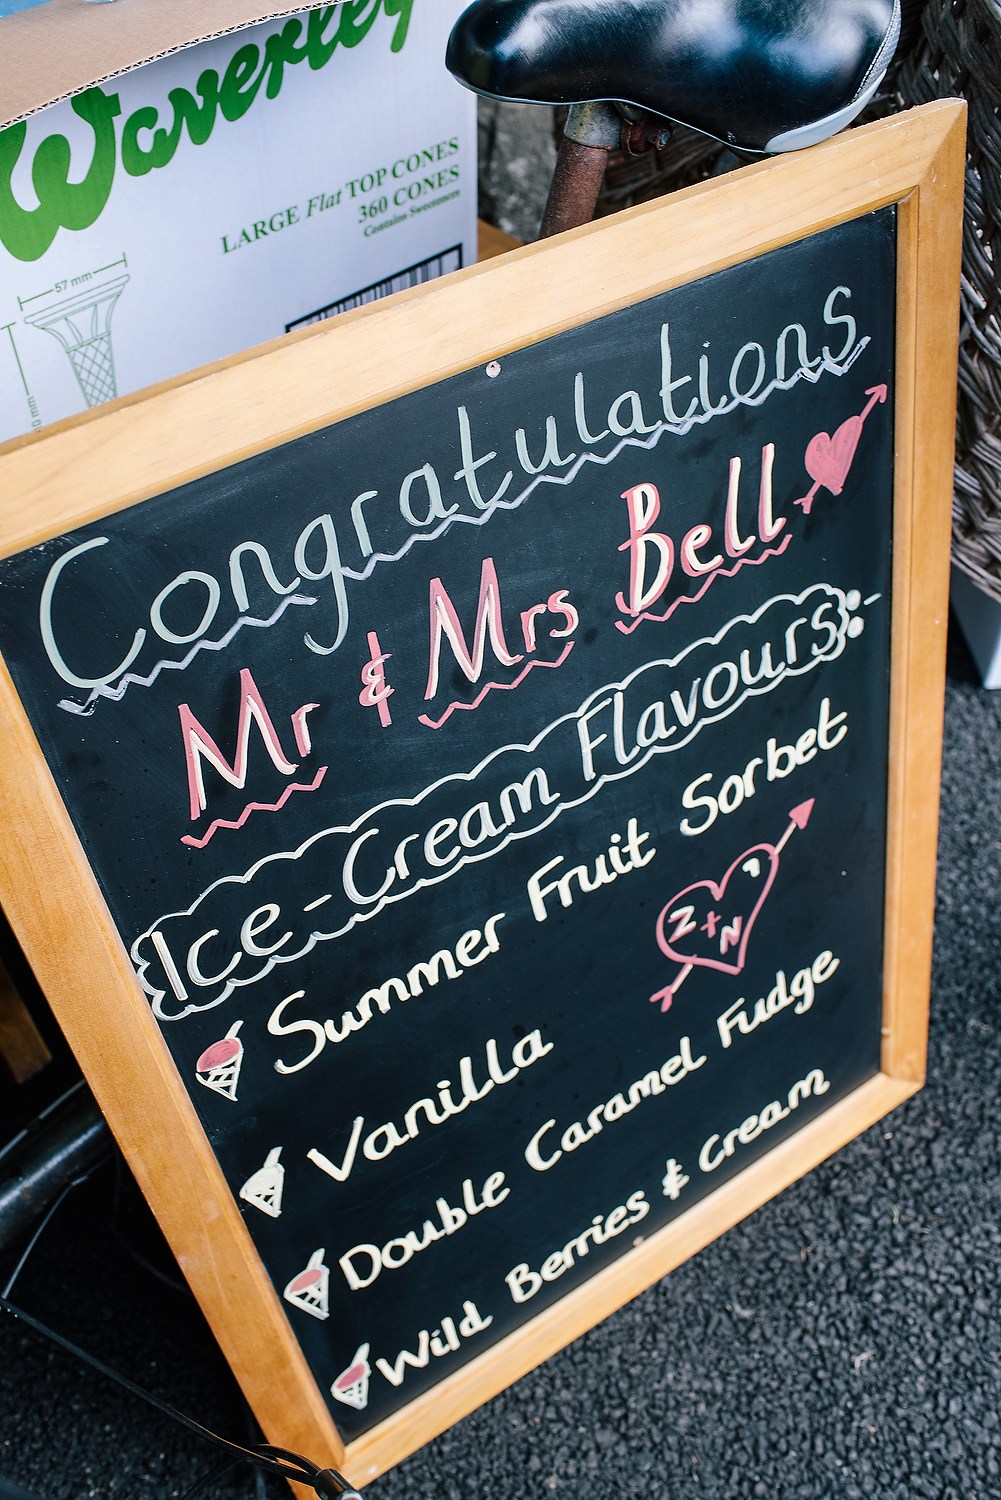 Waverley
LARGE Flat TOP CONES
360 CONES
Contains Sweeteners
57 mm
Congratulations
Mr & Mrs Bell
Ice-Cream Flavours:-
Summer Fruit Sorbet
Z + N
Vanilla
Double Caramel Fudge
Wild Berries & Cream